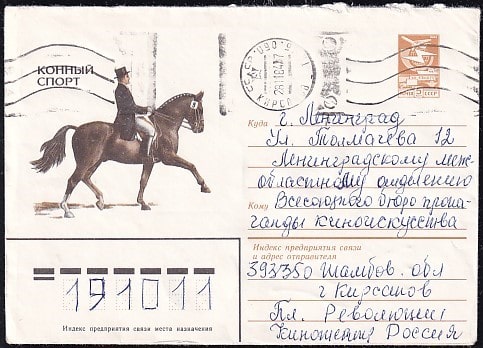 КОННЫЙ
СПОРТ
ПОЧТА СССР
Куда г. Ленинград
Ул. Толмачёва 12
Ленинградскому меж-
областному отделению
Кому Всесоюзного бюро пропа-
ганды киноискусства
Индекс предприятия связи
и адрес отправителя
393350 Тамбов. обл
г Кирсанов
Пл. Революции
Кинотеатр Россия
191011
Индекс предприятия связи места назначения